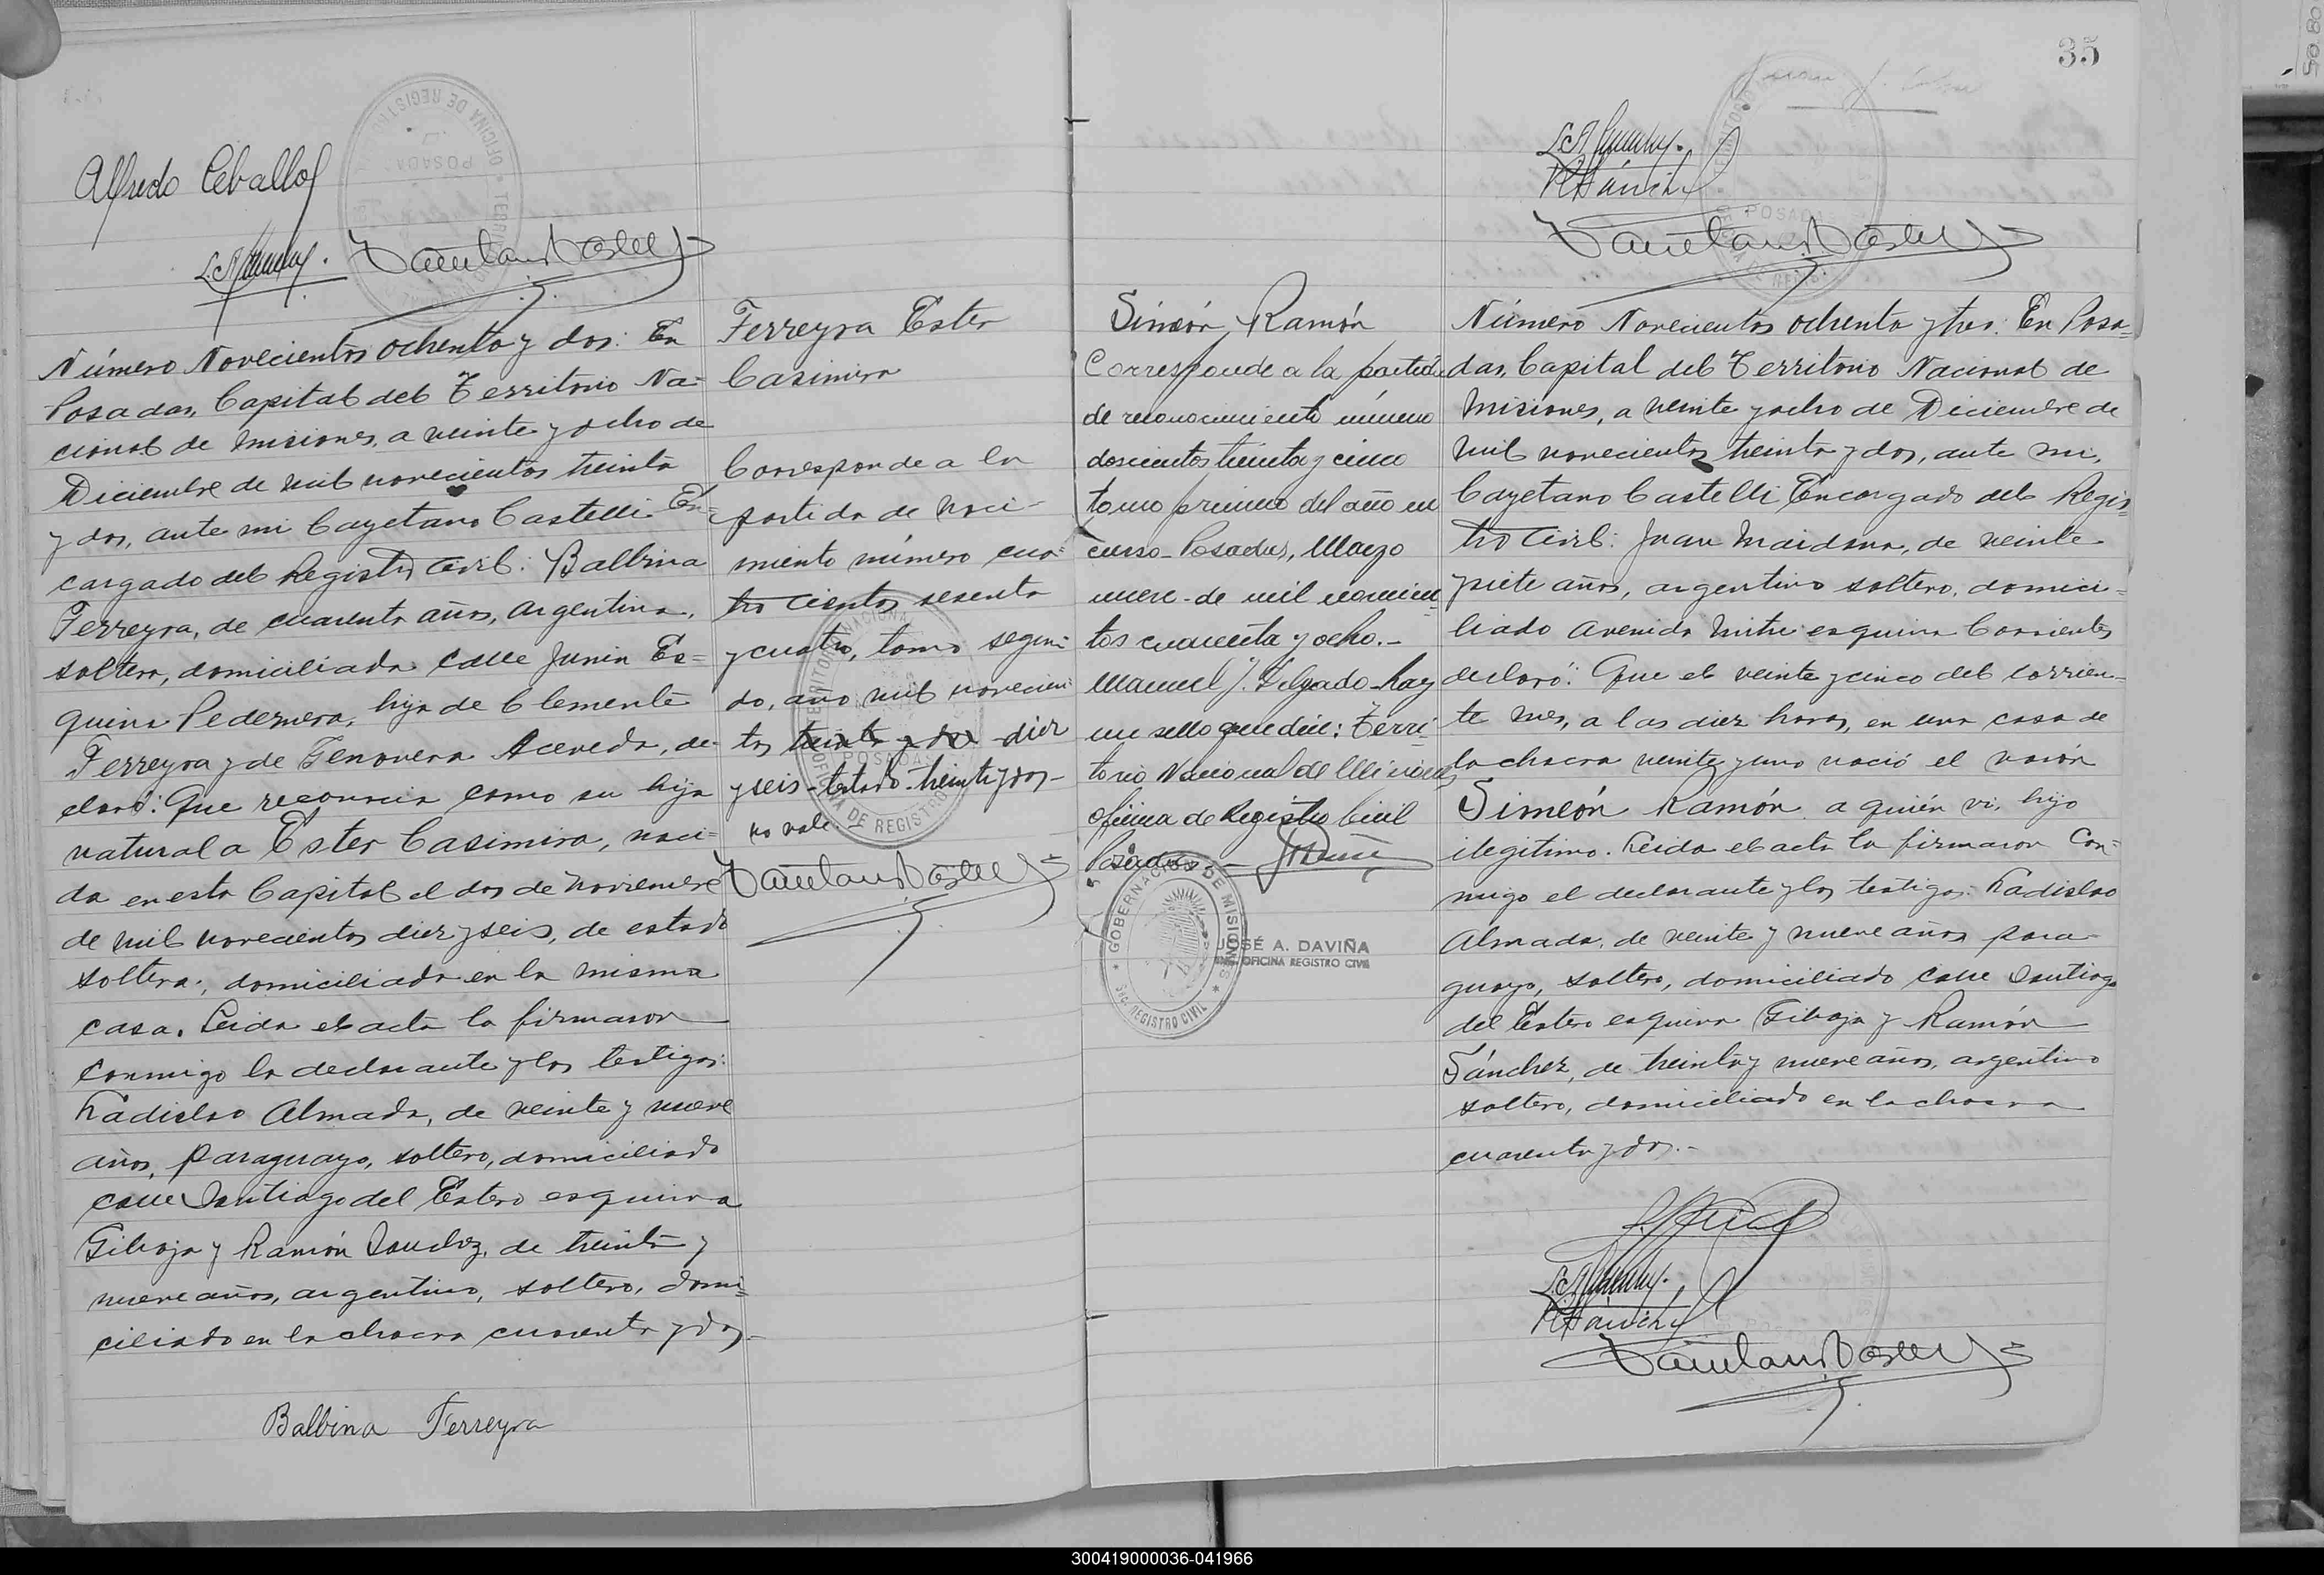 Alfredo Ceballos
Número Novecientos ochenta y dos: En
Posadas, Capital del Territorio Na=
cional de Misiones, a veinte y ocho de
Diciembre de mil novecientos treinta
y dos, ante mi Cayetano Castelli En=
cargado del Registro Civil: Balbina
Ferreyra, de cuarenta años, argentina,
soltera, domiciliada calle Junin Es=
quina Pedernera, hija de Clemente
Ferreyra y de Genovera Acevedo, de-
claró: Que reconocia como su hija
natural a Ester Casimira, naci=
da en esta Capital el dos de Noviembre
de mil novecientos diez y seis, de estado
soltera, domiciliada en la misma
casa. Leida el acta la firmaron
conmigo la declarante y los testigos:
Ladislao Almada, de veinte y nueve
años, paraguayo, soltero, domiciliado
calle Santiago del Estero esquina
Gibaja y Ramón Sanchez, de treinta y
nueve años, argentino, soltero, domi=
ciliado en la chacra cuarenta y dos.-
Balbina Ferreyra
Ferreyra Ester
Casimira
Corresponde a la
partida de Naci-
miento número cua=
tro cientos sesenta
y cuatro, tomo segun-
do, año mil novecien=
tos treinta y dos diez
y seis - testado - treinta y dos -
no vale.
OFICINA DE REGISTRO
POSADAS
Simeón Ramón
Corresponde a la partida
de reconocimiento número
doscientos treinta y cinco
tomo primero del año en
curso - Posadas, Mayo
nueve de mil novecien=
tos cuarenta y ocho.-
Manuel J. Delgado - hay
un sello que dice: Terri-
torio Nacional de Misiones
Oficina de Registro Civil
Posadas -
GOBERNACION DE MISIONES
REGISTRO CIVIL
JOSÉ A. DAVIÑA
OFICINA REGISTRO CIVIL
35
POSADAS
Número Novecientos ochenta y tres: En Posa=
das, Capital del Territorio Nacional de
Misiones, a veinte y ocho de Diciembre de
mil novecientos treinta y dos, ante mi,
Cayetano Castelli Encargado del Regis=
tro Civil: Juan Maidana, de veinte
y siete años, argentino soltero, domici-
liado Avenida Mitre esquina Corrientes
declaró: Que el veinte y cinco del corrien-
te mes, a las diez horas, en una casa de
la chacra veinte y uno nació el varón
Simeón Ramón a quién vi, hijo
ilegitimo. Leida el acta la firmaron Con=
migo el declarante y los testigos: Ladislao
Almada, de veinte y nueve años para-
guayo, soltero, domiciliado calle Santiago
del Estero esquina Gibaja y Ramón
Sánchez, de treinta y nueve años, argentino
soltero, domiciliado en la chacra
cuarenta y dos.-
300419000036-041966